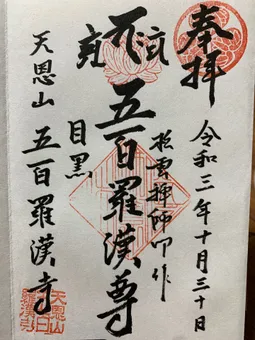 奉拝
令和三年十月三十日
松雲禅師御作
五百羅漢尊
目黒
天恩山 五百羅漢寺
天恩山